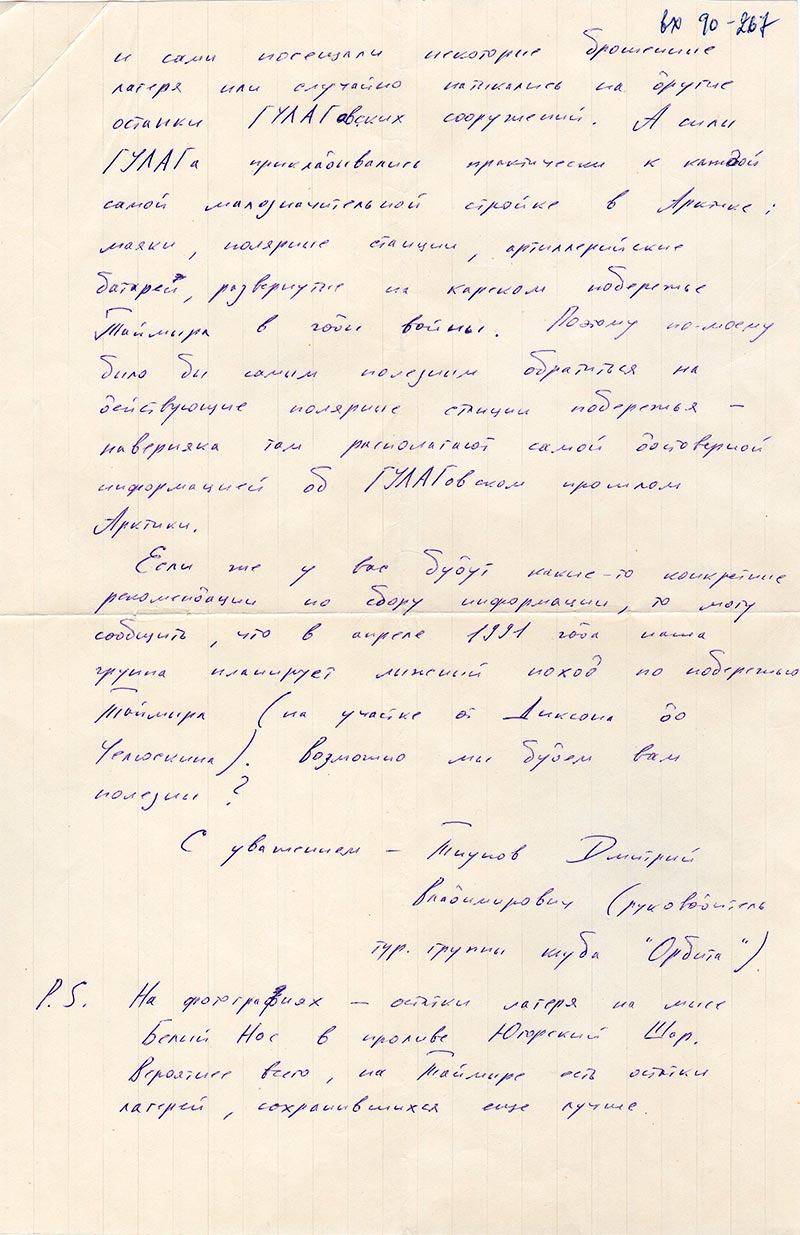 вх 90-267
и сами посещали некоторые брошенные
лагеря или случайно натыкались на другие
останки ГУЛАГовских сооружений. А силы
ГУЛАГа прикладывались практически к каждой
самой малозначительной стройке в Арктике:
маяки, полярные станции, артиллерийские
батареи, развернутые на карском побережье
Таймыра в годы войны. Поэтому по-моему
было бы самым полезным обратиться на
действующие полярные станции побережья –
наверняка там располагают самой достоверной
информацией об ГУЛАГовском прошлом
Арктики.
Если же у вас будут какие-то конкретные
рекомендации по сбору информации, то могу
сообщить, что в апреле 1991 года наша
группа планирует лыжный поход по побережью
Таймыра (на участке от Диксона до
Челюскина). Возможно мы будем вам
полезны?
С уважением – Тиунов Дмитрий
Владимирович (руководитель
тур. группы клуба "Орбита")
P.S. На фотографиях – остатки лагеря на мысе
Белый Нос в проливе Югорский Шар.
Вероятнее всего, на Таймыре есть остатки
лагерей, сохранившихся еще лучше.